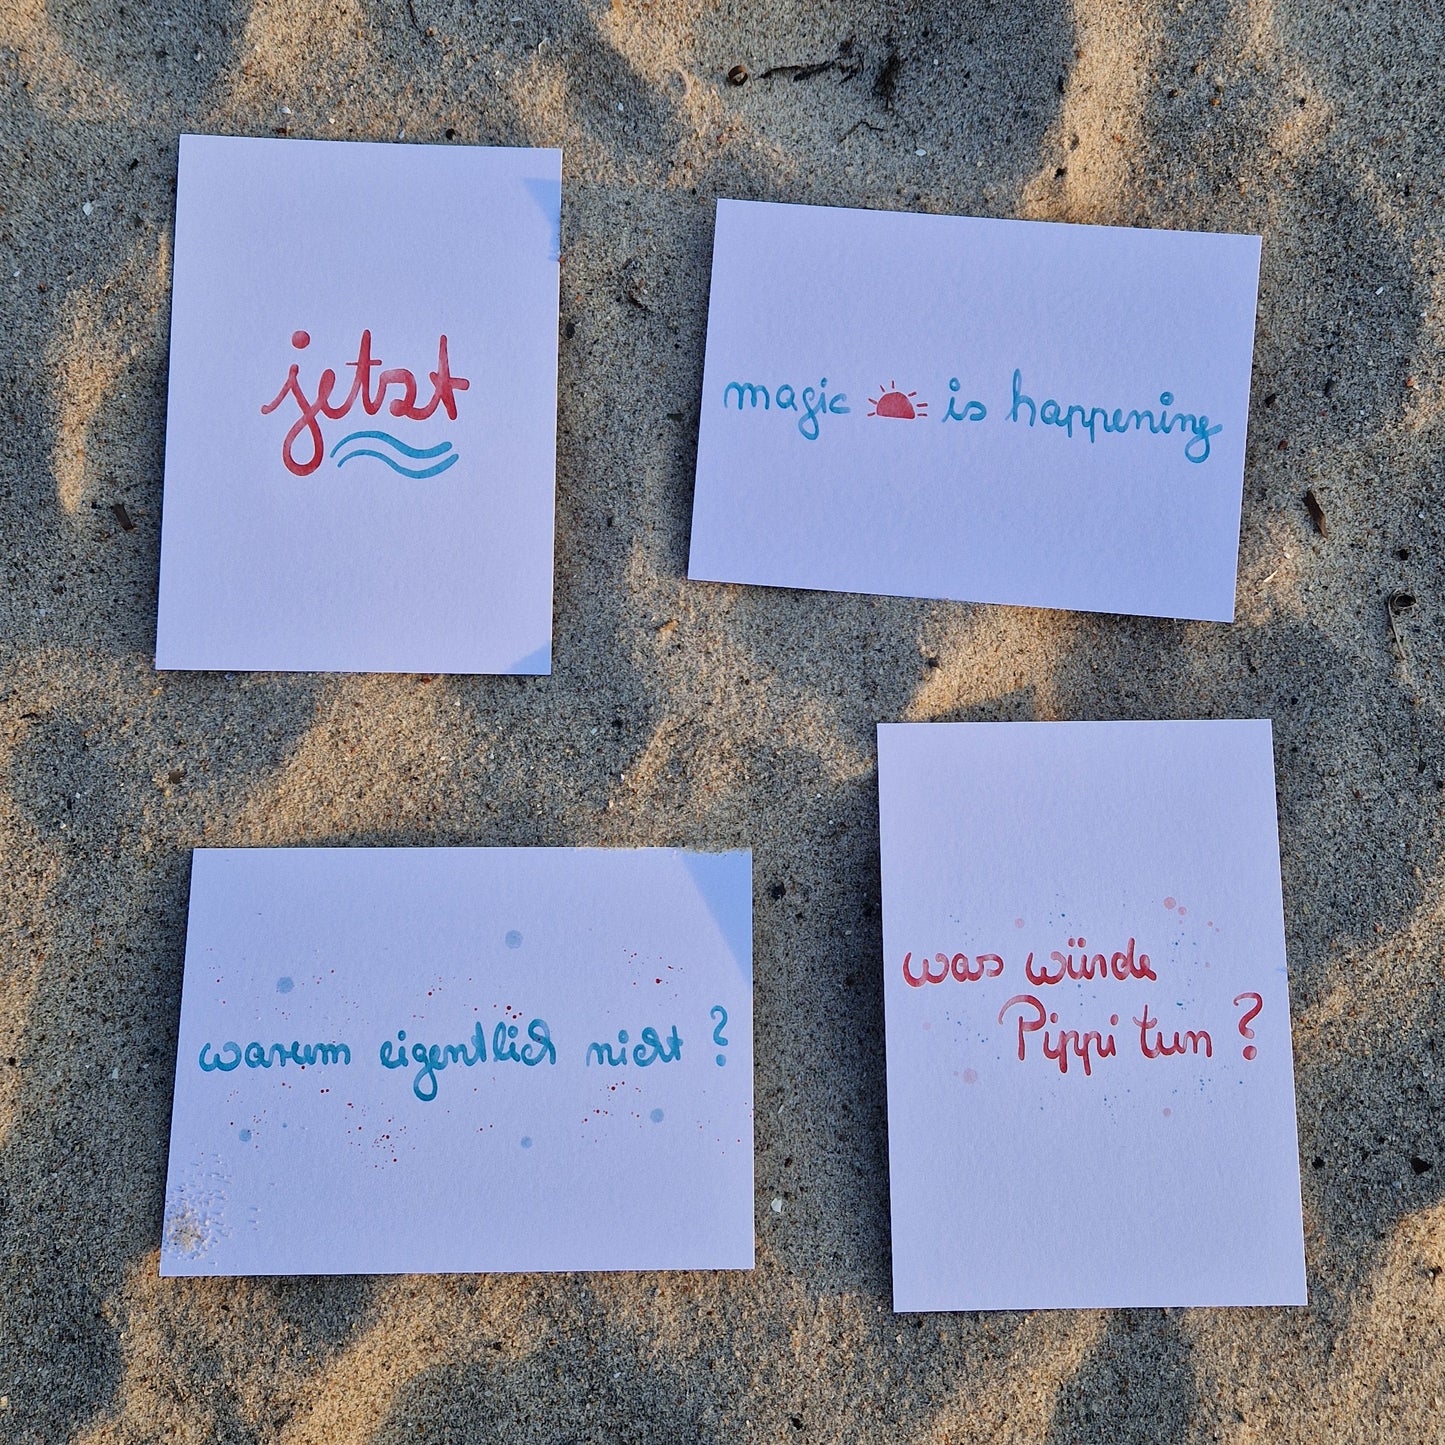 jetzt
magic is happening
warum eigentlich nicht ?
was würde
Pippi tun ?